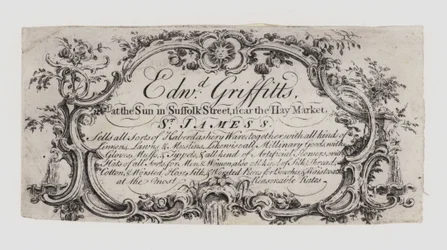 Edwd. Griffitts,
at the Sun in Suffolk Street, near the Hay Market,
St. JAMES'S.
Sells all Sorts of Haberdashery Ware, together with all kinds of
Linnens, Lawns, & Muslins, Likewise all Millinary Goods, with
Gloves, Muffs, & Tippets, & all kind of Artificial Flowers, with
Hats of all Sorts for Men, & Women, also all kinds of Silk, Thread,
Cotton, & Worsted Hose, Silk & Worsted Pieces for Breeches & Waistcoats
at the most Reasonable Rates